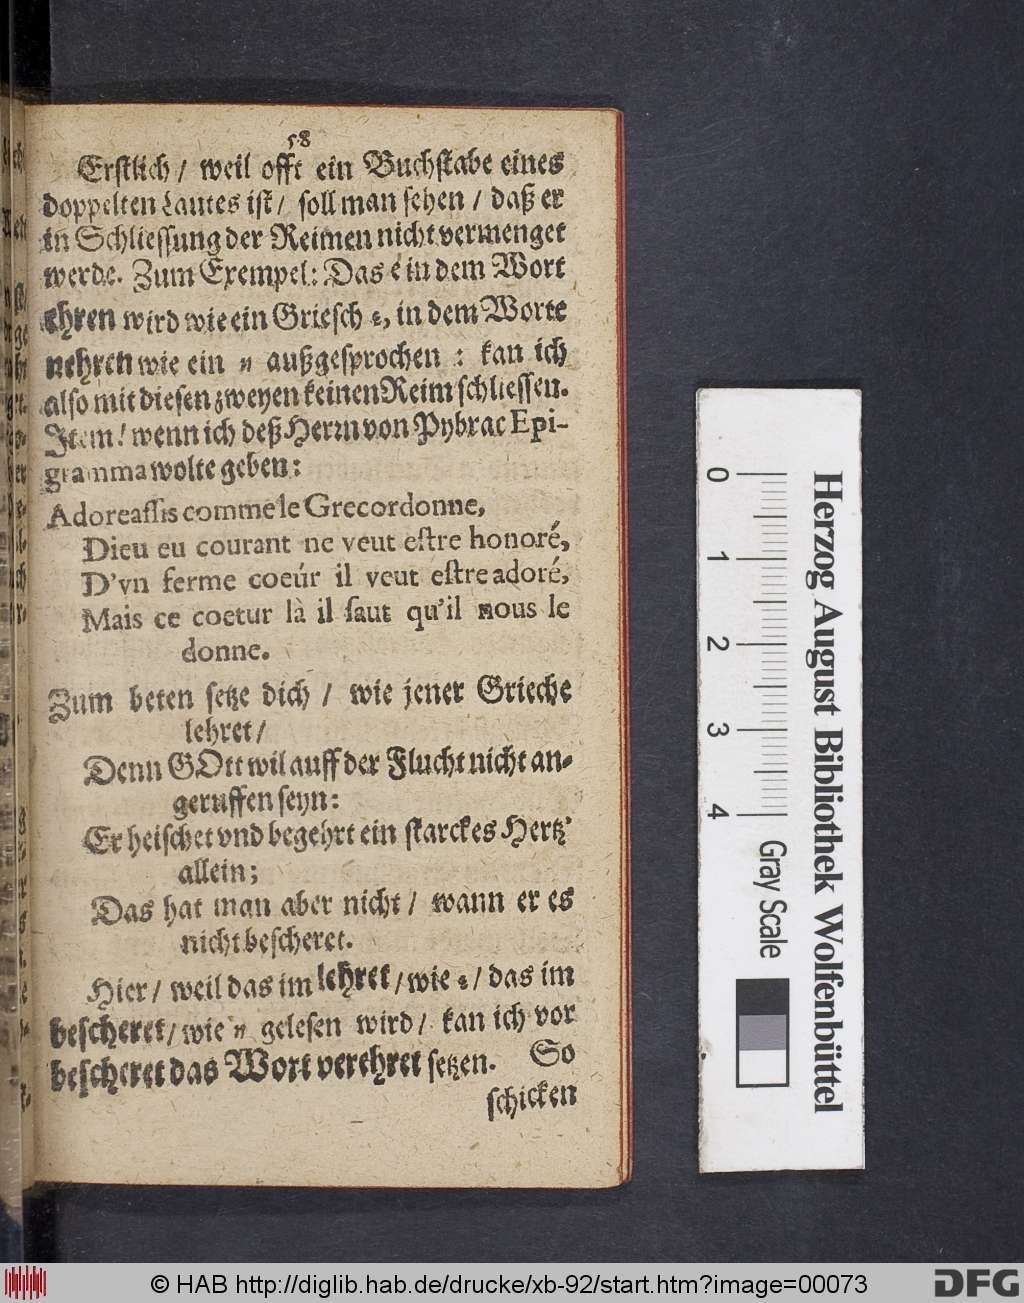 58
Erstlich / weil offt ein Buchstabe eines
doppelten Lautes ist / soll man sehen / daß er
in Schliessung der Reimen nicht vermenget
werde. Zum Exempel: Das e in dem Wort
ehren wird wie ein Griesch ε, in dem Worte
nehren wie ein η außgesprochen : kan ich
also mit diesen zweyen keinen Reim schliessen.
Item / wenn ich deß Herrn von Pybrac Epi-
gramma wolte geben:
Adore assis comme le Grec ordonne,
Dieu eu courant ne veut estre honoré,
D'vn ferme coeúr il veut estre adoré,
Mais ce coetur là il faut qu'il nous le
donne.
Zum beten setze dich / wie jener Grieche
lehret /
Denn GOtt wil auff der Flucht nicht an-
geruffen seyn:
Er heischet vnd begehrt ein starckes Hertz'
allein;
Das hat man aber nicht / wann er es
nicht bescheret.
Hier / weil das im lehret / wie ε / das im
bescheret / wie η gelesen wird / kan ich vor
bescheret das Wort verehret setzen. So
schicken
0 1 2 3 4
Gray Scale
Herzog August Bibliothek Wolfenbüttel
© HAB http://diglib.hab.de/drucke/xb-92/start.htm?image=00073
DFG